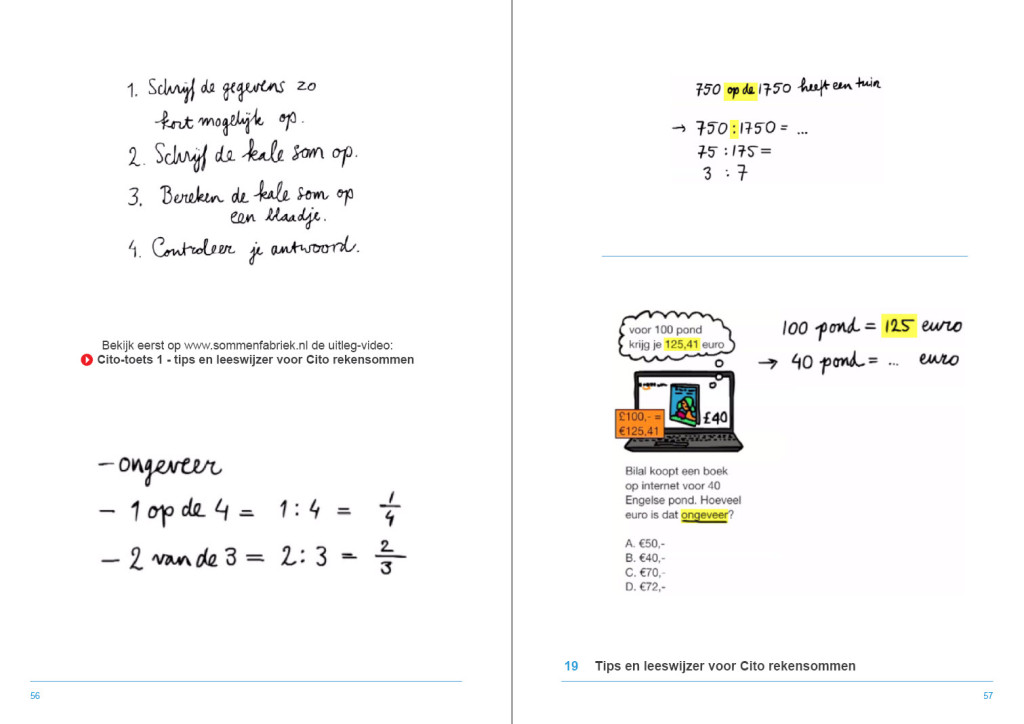 1. Schrijf de gegevens zo
kort mogelijk op.
2. Schrijf de kale som op.
3. Bereken de kale som op
een blaadje.
4. Controleer je antwoord.
Bekijk eerst op www.sommenfabriek.nl de uitleg-video:
Cito-toets 1 - tips en leeswijzer voor Cito rekensommen
- ongeveer
- 1 op de 4 = 1 : 4 = 1/4
- 2 van de 3 = 2 : 3 = 2/3
56
750 op de 1750 heeft een tuin
→ 750 : 1750 = ...
75 : 175 =
3 : 7
voor 100 pond
krijg je 125,41 euro
100 pond = 125 euro
→ 40 pond = ... euro
£40
£100,- =
€125,41
Bilal koopt een boek
op internet voor 40
Engelse pond. Hoeveel
euro is dat ongeveer?
A. €50,-
B. €40,-
C. €70,-
D. €72,-
19 Tips en leeswijzer voor Cito rekensommen
57